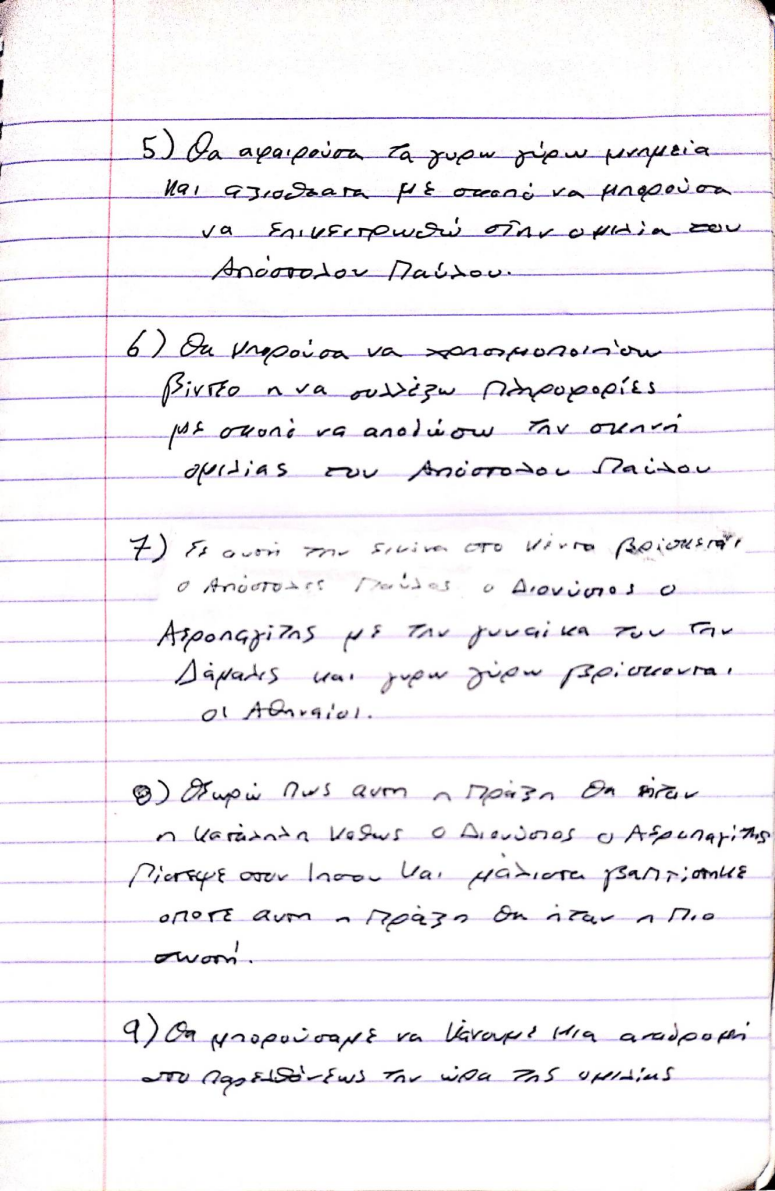 5) Θα αφαιρούσα τα γυρω γύρω μνημεία
και αξιοθεατα με σκοπό να μπορούσα
να επικεντρωθώ στην ομιλία του
Απόστολου Παύλου.
6) Θα μπορούσα να χρησιμοποιήσω
βίντεο η να συλλέξω πληροφορίες
με σκοπό να αποδώσω την σκηνή
ομιλίας του Απόστολου Παύλου
7) Σε αυτή την εικόνα στο κέντρο βρίσκεται
ο Απόστολος Παύλος ο Διονύσιος ο
Αεροπαγίτης με την γυναίκα του την
Δάμαλις και γυρω γύρω βρίσκονται
οι Αθηναίοι.
8) Θεωρώ πως αυτη η πράξη θα ήταν
η κατάληλη καθως ο Διονύσιος ο Αεροπαγίτης
πίστεψε στον Ιησου και μάλιστα βαπτίστηκε
οποτε αυτη η πράξη θα ήταν η πιο
σωστή.
9) Θα μπορούσαμε να κάνουμε μια αναδρομή
στο παρελθόν την ώρα της ομιλίας